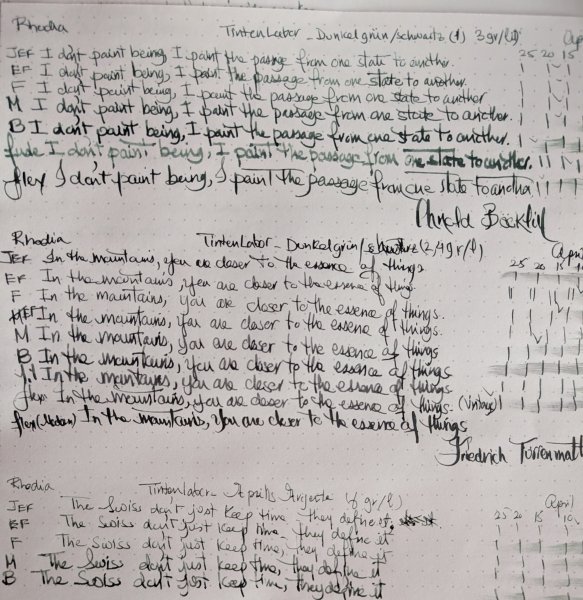 Rhodia TintenLabor - Dunkelgrün/schwartz (1) 3gr/l
25 20 15
JEF I don't paint being, I paint the passage from one state to another.
EF I don't paint being, I paint the passage from one state to another.
F I don't paint being, I paint the passage from one state to another
M I don't paint being, I paint the passage from one state to another.
B I don't paint being, I paint the passage from one state to another.
fude I don't paint being, I paint the passage from one state to another.
flex I don't paint being, I paint the passage from one state to another
Arnold Böcklin
Rhodia TintenLabor - Dunkelgrün/schwartz (2,4gr/l) April
25 20 15
JEF In the mountains, you are closer to the essence of things
EF In the mountains, you are closer to the essence of things
F In the mountains, you are closer to the essence of things.
MEF In the mountains, you are closer to the essence of things.
M In the mountains, you are closer to the essence of things
B In the mountains, you are closer to the essence of things
In the mountains, you are closer to the essence of things
flex In the mountains, you are closer to the essence of things. (vintage)
flex (Modern) In the mountains, you are closer to the essence of things
Friedrich Türrenmatt
Rhodia Tintenlabor - Aprilis Argenta (gr/l) April
25 20 15 10
JEF The Swiss don't just keep time, they define it.
EF The Swiss don't just keep time, they define it
F The Swiss don't just keep time, they define it
M The Swiss don't just keep time, they define it
B The Swiss don't just keep time, they define it